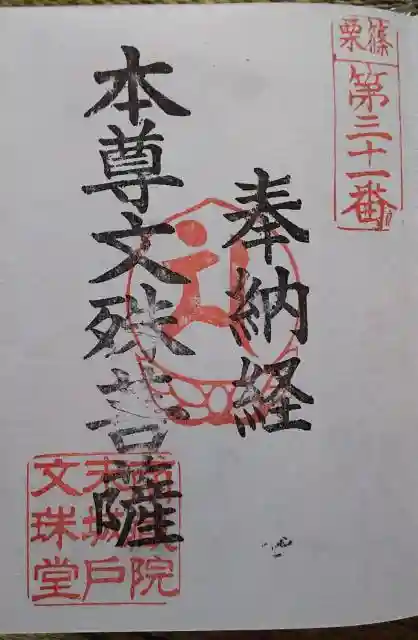 篠栗
第三十一番
奉納経
本尊文殊菩薩
院
城戸
文珠堂